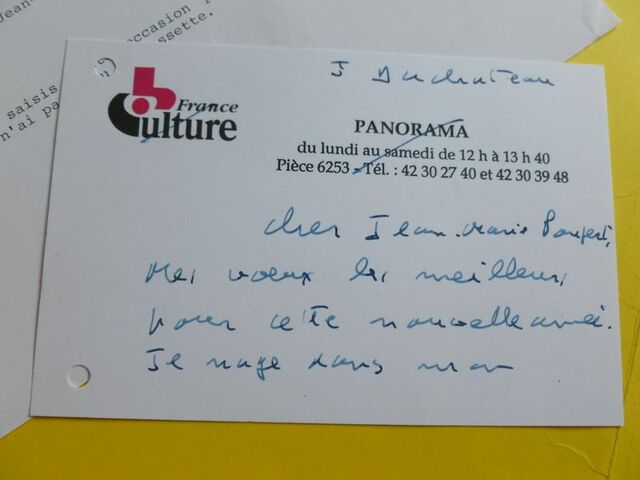 Jean-
occasion p
ssette.
saisis
n'ai pa
J Duchateau
France
Culture
PANORAMA
du lundi au samedi de 12 h à 13 h 40
Pièce 6253 - Tél. : 42 30 27 40 et 42 30 39 48
cher Jean-Marie
Mes voeux les meilleurs
pour cette nouvelle année.
Je nage dans mon